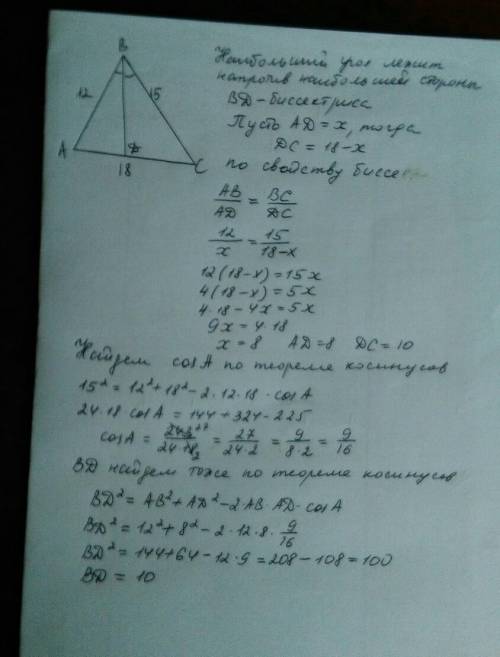 B
12
15
A
D
C
18
Наибольший угол лежит
напротив наибольшей стороны
BD - биссектриса
Пусть AD = x, тогда
DC = 18 - x
по свойству
AB/AD = BC/DC
12/x = 15/18-x
12(18-x) = 15x
4(18-x) = 5x
4·18 - 4x = 5x
9x = 4·18
x = 8 AD = 8 DC = 10
Найдем cosA по теореме косинусов
15² = 12² + 18² - 2·12·18·cosA
24·18 cosA = 144 + 324 - 225
cosA = 243 27/24·18 2 = 27/24·2 = 9/8·2 = 9/16
BD найдем тоже по теореме косинусов
BD² = AB² + AD² - 2AB·AD·cosA
BD² = 12² + 8² - 2·12·8·9/16
BD² = 144 + 64 - 12·9 = 208 - 108 = 100
BD = 10